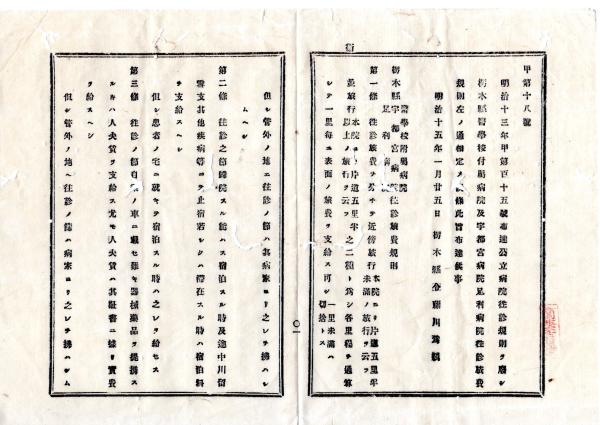 甲第十八號
明治十三年甲第百十五號布達公立病院往診規則ヲ廢シ
栃木縣醫學校付屬病院及宇都宮病院足利病院往診旅費
規則左ノ通相定メ候條此旨布達候事
明治十五年一月廿五日 栃木縣令藤川爲親
衛
醫學校附屬病院
栃木縣宇都宮病院往診旅費規則
足利病院
第一條 往診旅費ヲ分チテ近傍旅行 本院ヨリ片道五里半未滿ノ旅行ヲ云フ
並旅行 本院ヨリ片道五里半以上ノ旅行ヲ云フ 之二種ト爲シ各里程ヲ通算
シテ一里毎ニ表面ノ旅費ヲ支給ス可シ 一里未滿ハ切捨トス
〇一
但シ管外ノ地ニ往診ノ節ハ其病家ヨリ之レヲ拂ハシ
ムヘシ
第二條 往診之節歸院スル能ハス宿泊スル時及途中川留
雪支其他疾病等ニテ止宿若シクハ滯在スル時ハ宿泊料
ヲ支給スヘシ
但シ患者ノ宅ニ就キ宿泊スル時ハ之レヲ給セス
第三條 往診ノ節自ラノ車ニ載セ難キ器械藥品ヲ提携ス
ルキハ人夫賃ヲ支給ス尤モ人夫賃ハ其證書ニ據リ實費
ヲ給スヘシ
但シ管外ノ地ヘ往診ノ節ハ病家ヨリ之レヲ拂ハシム